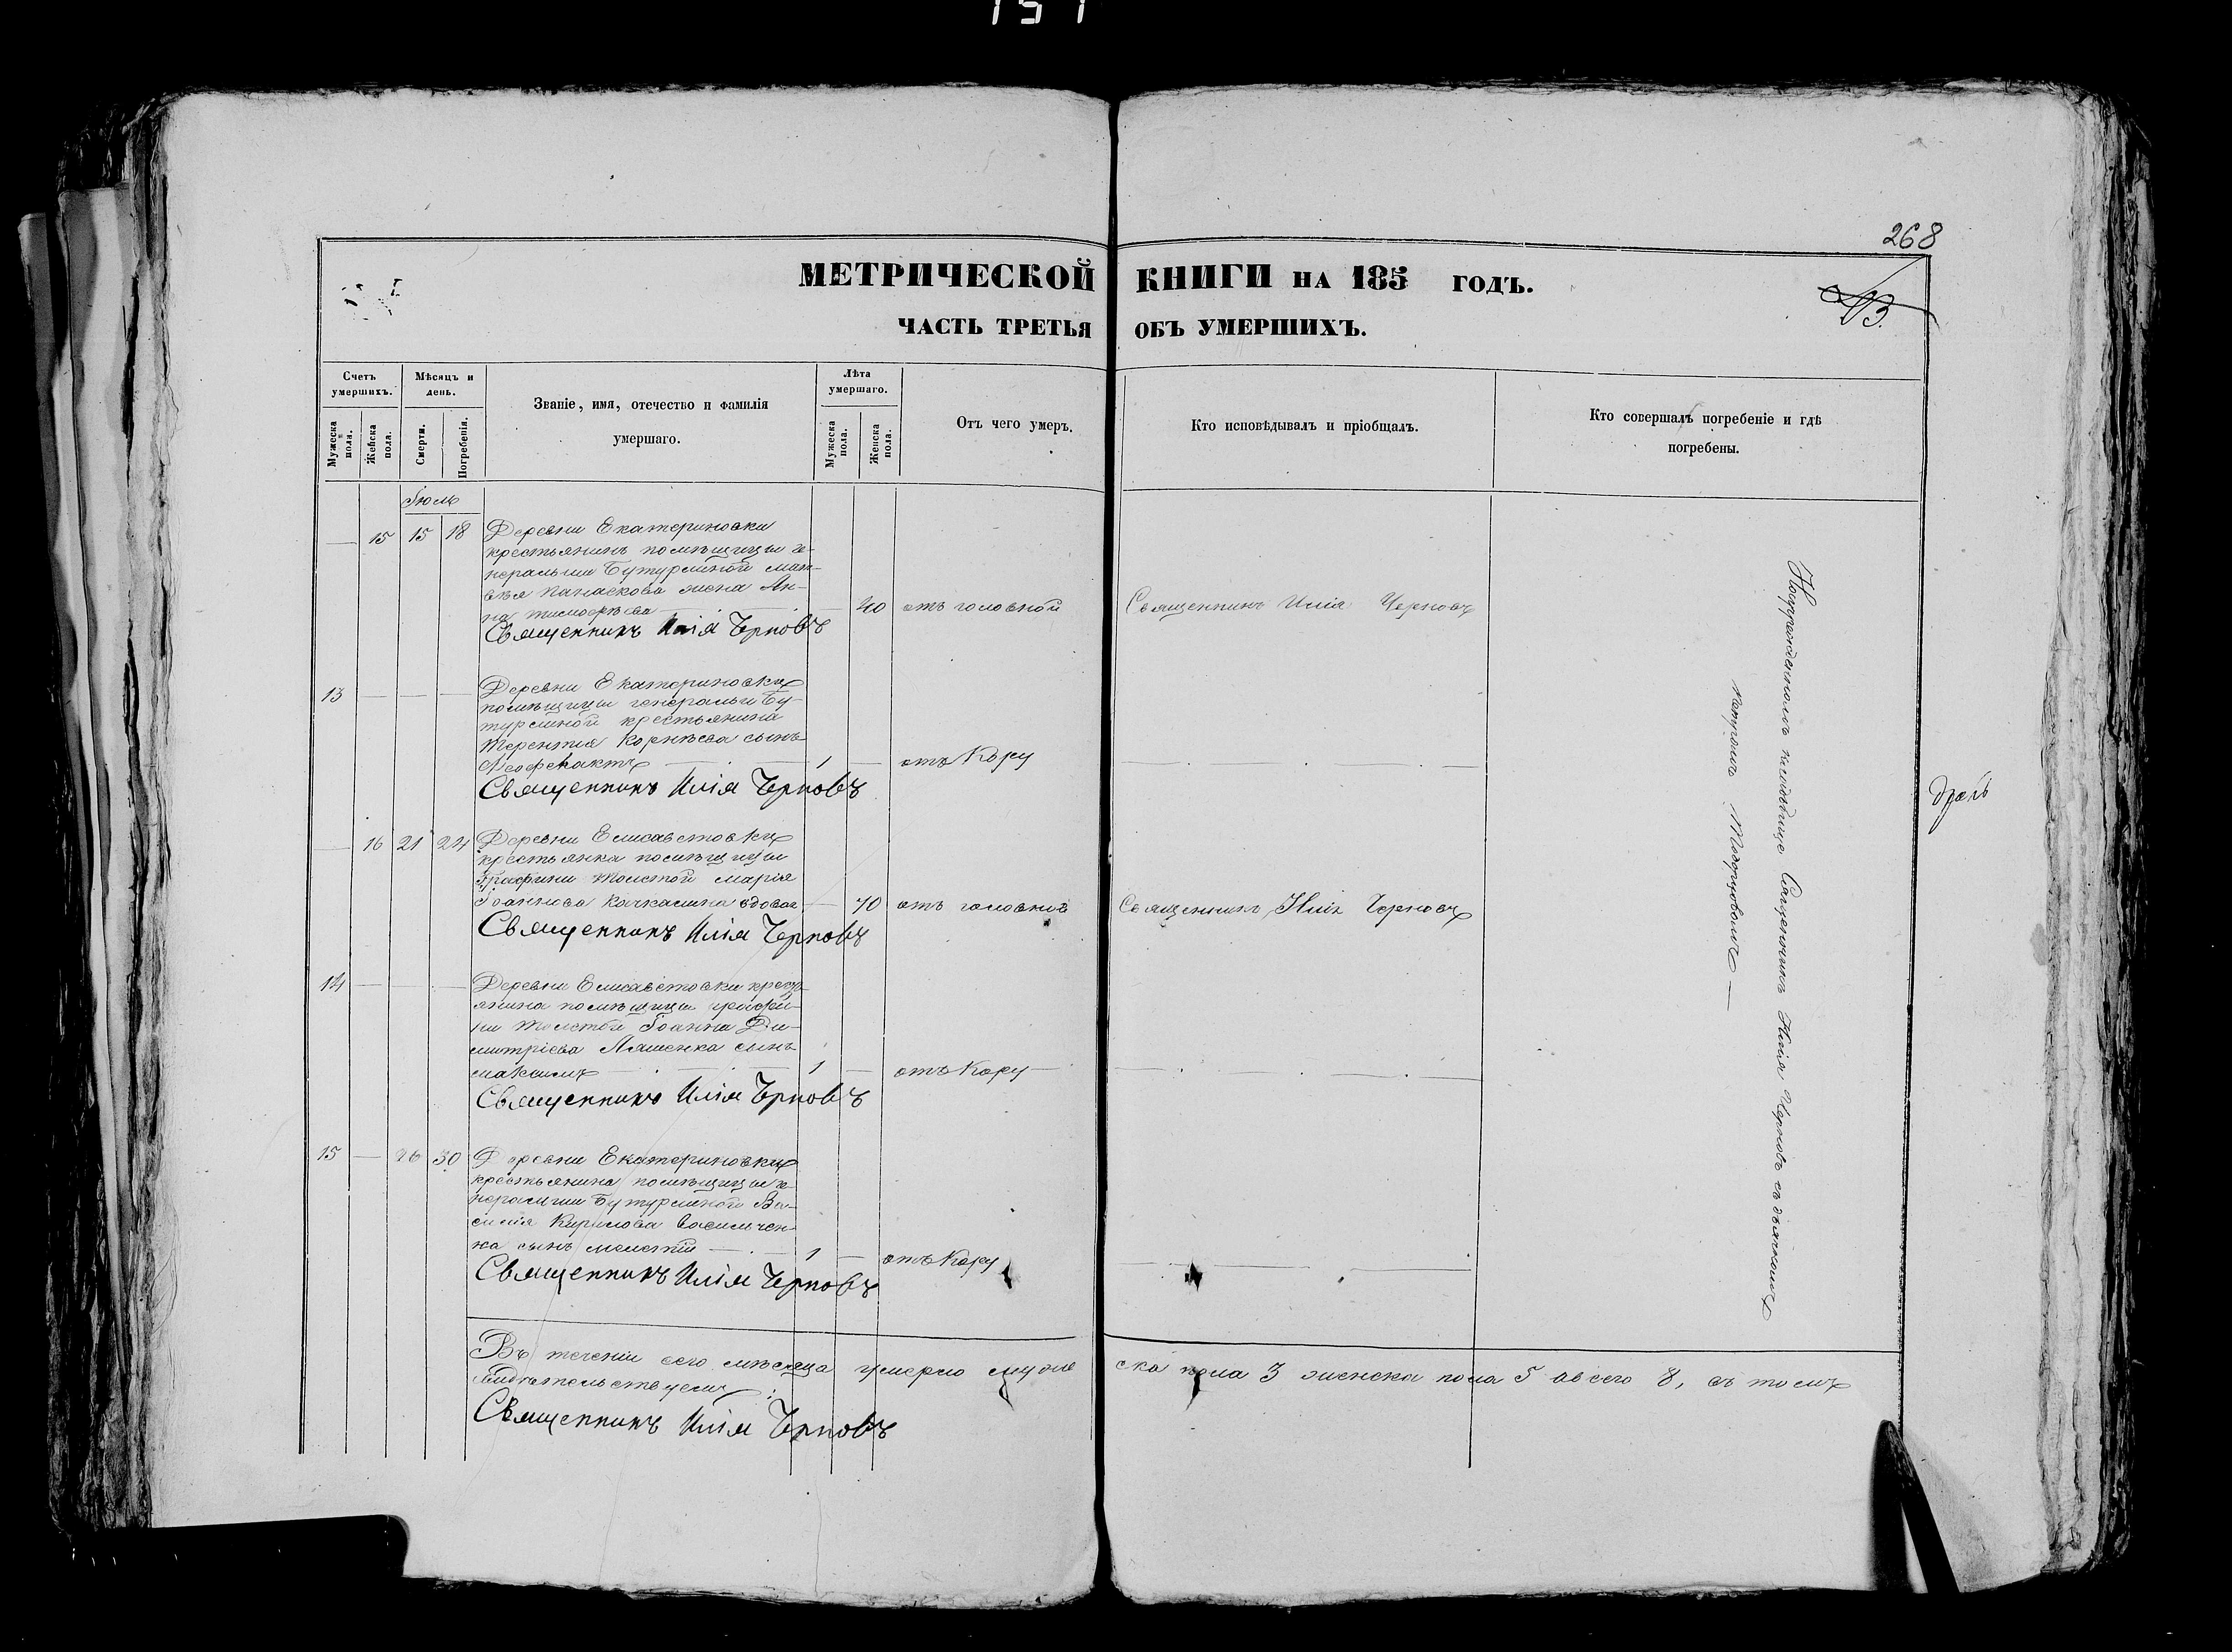 151
268
МЕТРИЧЕСКОЙ КНИГИ НА 185 ГОДЪ.
ЧАСТЬ ТРЕТЬЯ ОБЪ УМЕРШИХЪ.
Счетъ умершихъ.
Мужеска пола.
Женска пола.
Мѣсяцъ и день.
Смерти.
Погребенія.
Званіе, имя, отечество и фамилія
умершаго.
Лѣта умершаго.
Мужеска пола.
Женска пола.
Отъ чего умеръ.
Кто исповѣдывалъ и пріобщалъ.
Кто совершалъ погребеніе и гдѣ
погребены.
Іюль
15 15 18 Деревни Екатериновки
крестьянинъ помѣщицы ге-
неральши Бутурлиной Мат-
вѣя Панаскова жена Ан-
на Тимофѣева 40 отъ головной Священникъ Илія Черновъ
Священникъ Илія Черновъ
13 Деревни Екатериновки
помѣщицы генеральши Бу-
турлиной крестьянина
Терентія Корнѣева сынъ
Феофилактъ 1 отъ Кору
Священникъ Илія Черновъ
16 21 24 Деревни Елисаветовки
крестьянка помѣщицы
Графини Толстой Марія
Іоаннова Качкалина вдова 70 отъ головной Священникъ Илія Черновъ
Священникъ Илія Черновъ
14 Деревни Елисаветовки кресть-
янина помѣщицы графи-
ни Толстой Іоанна Ди-
митріева Ляшенка сынъ
Максимъ 1 отъ Кору
Священникъ Илія Черновъ
15 26 30 Деревни Екатериновки
крестьянина помѣщицы ге-
неральши Бутурлиной Ва-
силія Кирилова Васильчен-
ка сынъ 1 отъ Кору
Священникъ Илія Черновъ
кладбище Священникъ Илія Черновъ съ дьячкомъ
Петромъ
Въ теченіи сего мѣсяца умерло муже ска пола 3 женска пола 5 а всего 8, въ томъ
свидѣтельствуемъ:
Священникъ Илія Черновъ